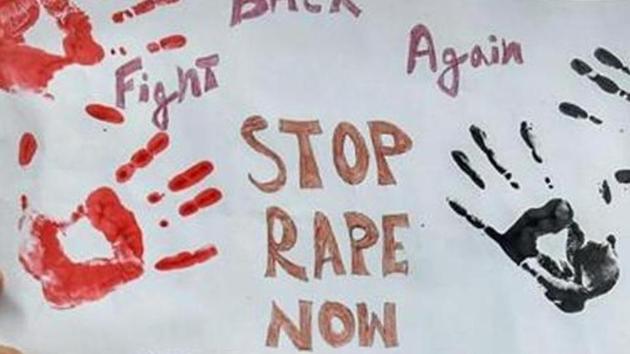 BACK
Fight
Again
STOP
RAPE
NOW